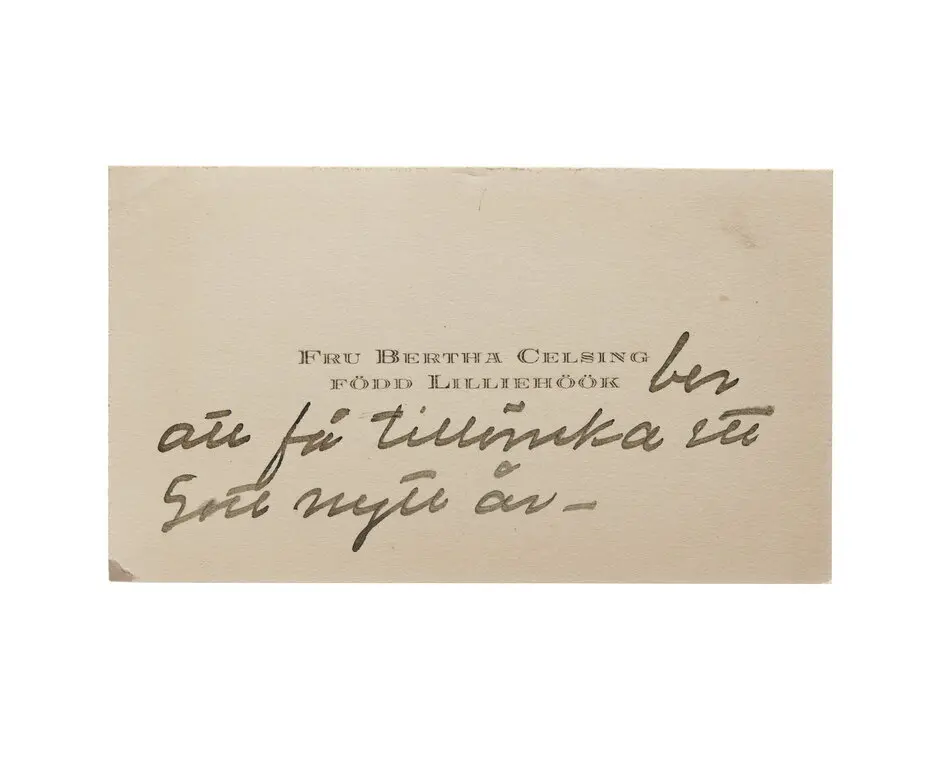 FRU BERTHA CELSING
FÖDD LILLIEHÖÖK ber
att få tillönska ett
Gott nytt år –